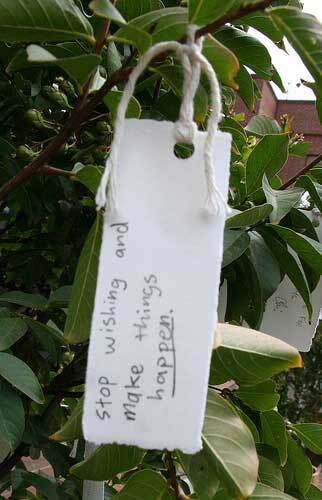 stop wishing and
make things
happen.